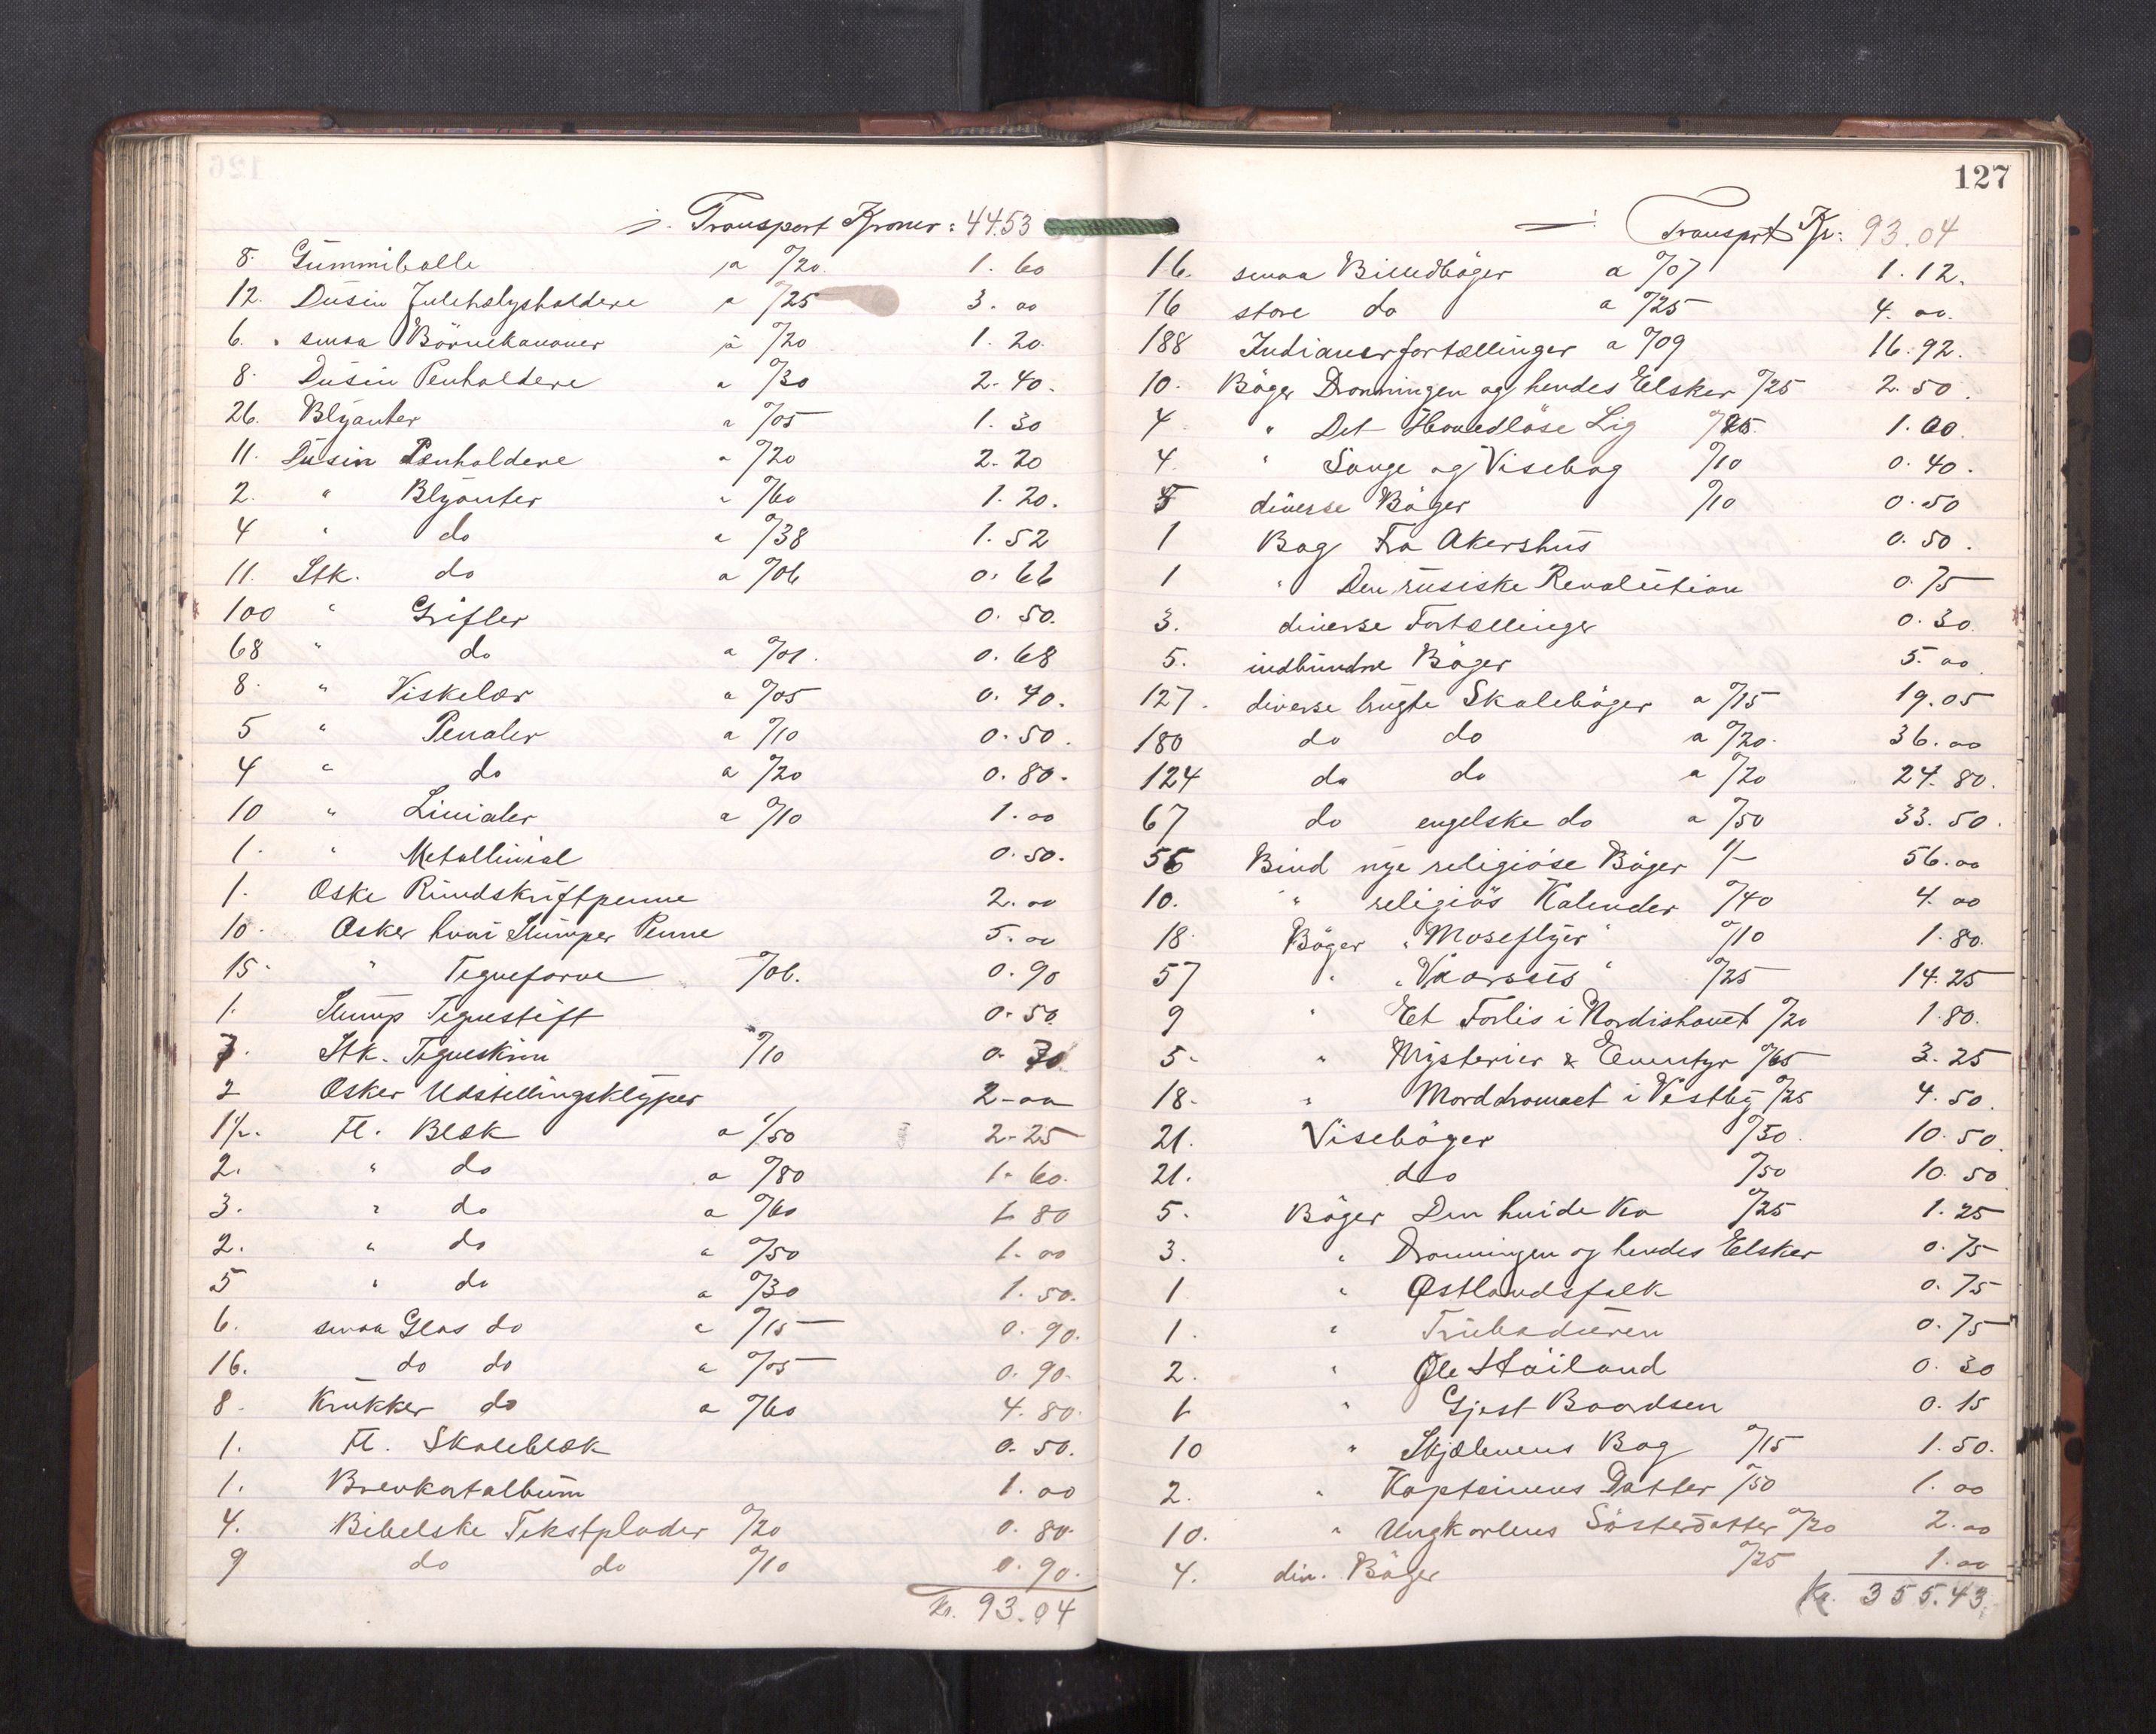 Transport Kroner: 44.53
8. Gummiballe a 0/20. 1.60
12. Dusin Juletrælysholdere a 0/25 3.00
6. smaa Börnekanoner a 0/20 1.20.
8. Dusin Penholdere a 0/30 2.40.
26. Blyanter a 0/05 1.30
11. Dusin Penholdere a 0/20 2.20
2. " Blyanter " 0/60 1.20.
4 " do a 0/38 1.52
11. Stk. do a 0/06 0.66
100 " Grifler 0.50.
68 " do a 0/01. 0.68
8. " Viskelær a 0/05 0.40.
5 " Penaler a 0/10 0.50.
4 " do a 0/20 0.80.
10 " Linialer a 0/10 1.00
1. " Metallinial 0.50.
1. Æske Rundskriftpenne 2.00
10. Æsker hvori Slumper Penne 5.00
15. " Tegnefarve 0/06. 0.90
1. Slump Tegnestift 0.50
7. Stk. Tegneskrin 0/10 0.70
2 Æsker Udstillingsklyper 2.00
1½. Fl. Blæk a 1/50 2.25
2. " do a 0/80 1.60.
3. " do a 0/60 1.80
2. " do a 0/50 1.00
5 " do a 0/30 1.50.
6. smaa Glas do a 0/15 0.90.
16. do do a 0/05 0.90.
8. Krukker do a 0/60 4.80.
1. Fl. Skoleblæk 0.50.
1. Brevkortalbum 1.00
4. Bibelske Tekstplader 0/20 0.80.
9 do do 0/10 0.90.
Kr. 93.04
127
Transprt Kr: 93.04
16. smaa Billedböger a 0/07 1.12.
16 store do a 0/25 4.00.
188 Indianerfortællinger a 0/09 16.92.
10. Böger Dronningen og hendes Elsker 0/25 2.50.
4 " Det Hovedlöse Lig 0/25 1.00.
4. " Sange og Visebog 0/10 0.40.
5 diverse Böger 0/10 0.50
1 Bog Fra Akershus 0.50.
1 " Den rusiske Revolution 0.75
3. diverse Fortællinger 0.30.
5. indbundne Böger 5.00
127. diverse brugte Skoleböger a 0/15 19.05
180 do do a 0/20. 36.00
124 do do a 0/20 24.80.
67 do engelske do a 0/50 33.50.
56 Bind nye religiöse Böger 1/- 56.00
10. " religiös Kalender 0/40 4.00
18. Böger "Moseflyer" 0/10 1.80.
57 " " 0/25 14.25
9 " Et Forlis i Nordishavet 0/20 1.80.
5. " Mysterier & Eventyr 0/65 3.25
18. " Morddramaet i Vestby 0/25 4.50.
21. Viseböger 0/50. 10.50.
21. do 0/50 10.50
5. Böger Den hvide Ko 0/25 1.25
3. " Dronningen og hendes Elsker 0.75
1 " Østlandsfolk 0.75
1. " Trubaduren 0.75
2. " Ole Höiland 0.30
1 " Gjest Baardsen 0.15
10 " Skjæbnens Bog 0/15 1.50.
2. " Kapteinens Datter 0/50 1.00
10. " Ungkarlens Sösterdatter 0/20 2.00
4. div. Böger 0/25 1.00
Kr. 355.43.